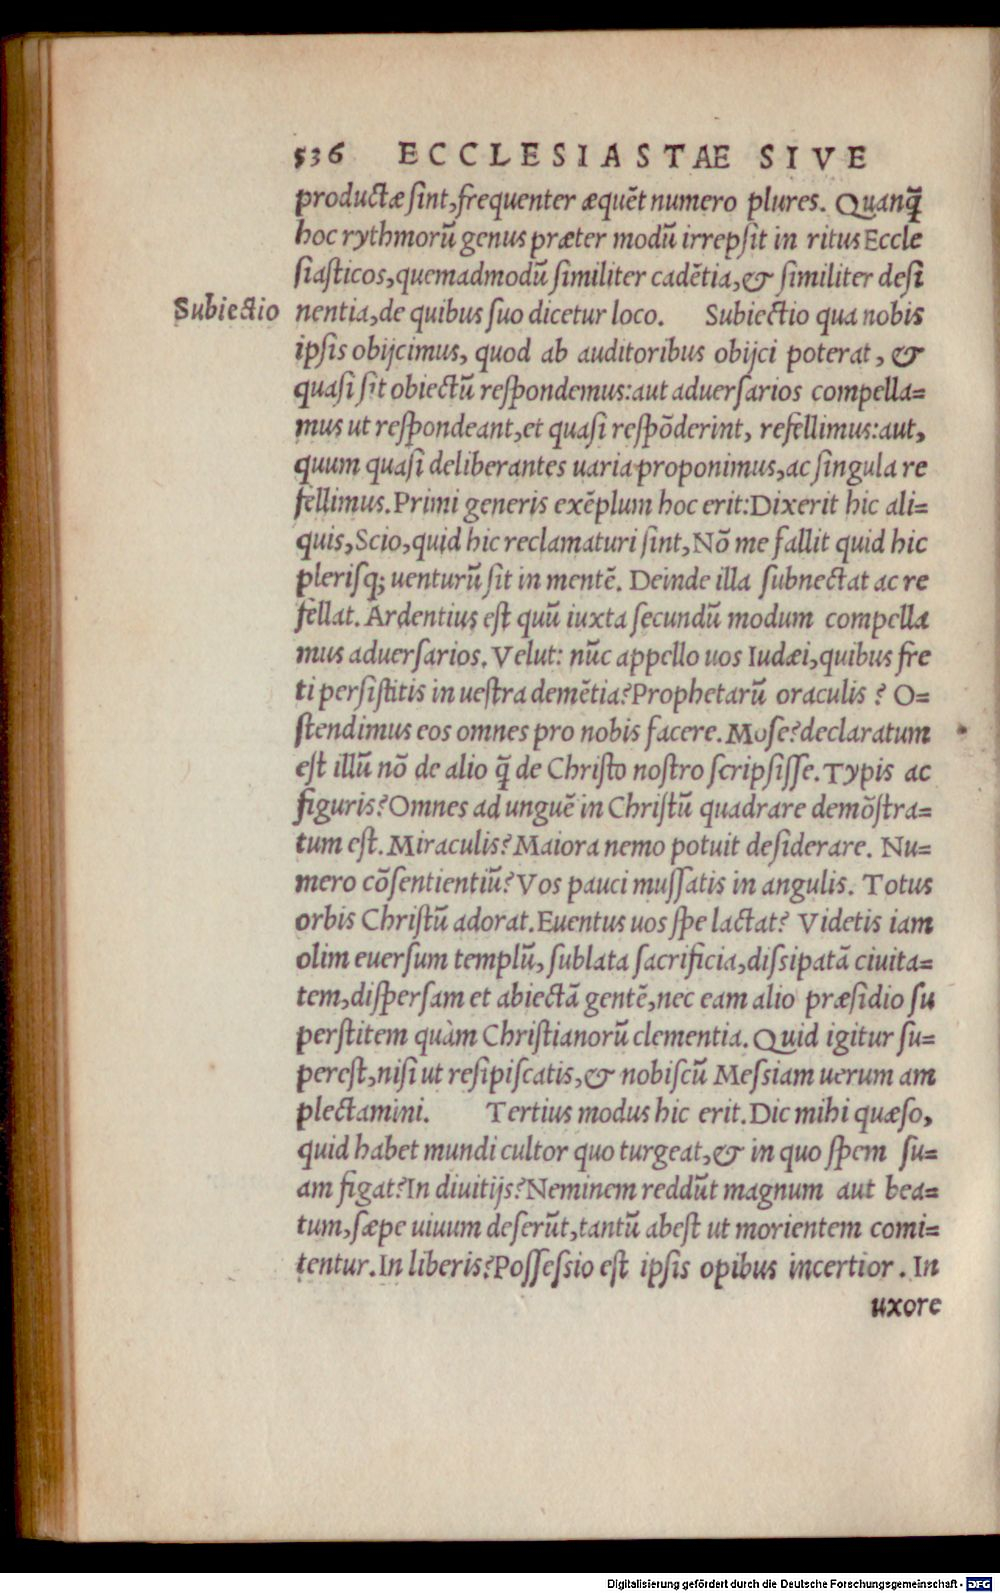 536 ECCLESIASTAE SIVE
productæ sint, frequenter æquēt numero plures. Quanq̃
hoc rythmorū genus præter modū irrepsit in ritus Eccle
siasticos, quemadmodū similiter cadētia, & similiter desi
Subiectio
nentia, de quibus suo dicetur loco. Subiectio qua nobis
ipsis obijcimus, quod ab auditoribus obijci poterat, &
quasi sit obiectū respondemus: aut aduersarios compella=
mus ut respondeant, et quasi respōderint, refellimus: aut,
quum quasi deliberantes uaria proponimus, ac singula re
fellimus. Primi generis exēplum hoc erit: Dixerit hic ali=
quis, Scio, quid hic reclamaturi sint, Nō me fallit quid hic
plerisq; uenturū sit in mentē. Deinde illa subnectat ac re
fellat. Ardentius est quū iuxta secundū modum compella
mus aduersarios. Velut: nūc appello uos Iudæi, quibus fre
ti persistitis in uestra demētia? Prophetarū oraculis? O=
stendimus eos omnes pro nobis facere. Mose? declaratum
est illū nō de alio q̃ de Christo nostro scripsisse. Typis ac
figuris? Omnes ad unguē in Christū quadrare demōstra=
tum est. Miraculis? Maiora nemo potuit desiderare. Nu=
mero cōsentientiū? Vos pauci mussatis in angulis. Totus
orbis Christū adorat. Euentus uos spe lactat? Videtis iam
olim euersum templū, sublata sacrificia, dissipatā ciuita=
tem, dispersam et abiectā gentē, nec eam alio præsidio su
perstitem quàm Christianorū clementia. Quid igitur su=
perest, nisi ut resipiscatis, & nobiscū Messiam uerum am
plectamini. Tertius modus hic erit. Dic mihi quæso,
quid habet mundi cultor quo turgeat, & in quo spem su=
am figat? In diuitijs? Neminem reddūt magnum aut bea=
tum, sæpe uiuum deserūt, tantū abest ut morientem comi=
tentur. In liberis? Possessio est ipsis opibus incertior. In
uxore
Digitalisierung gefördert durch die Deutsche Forschungsgemeinschaft - DFG